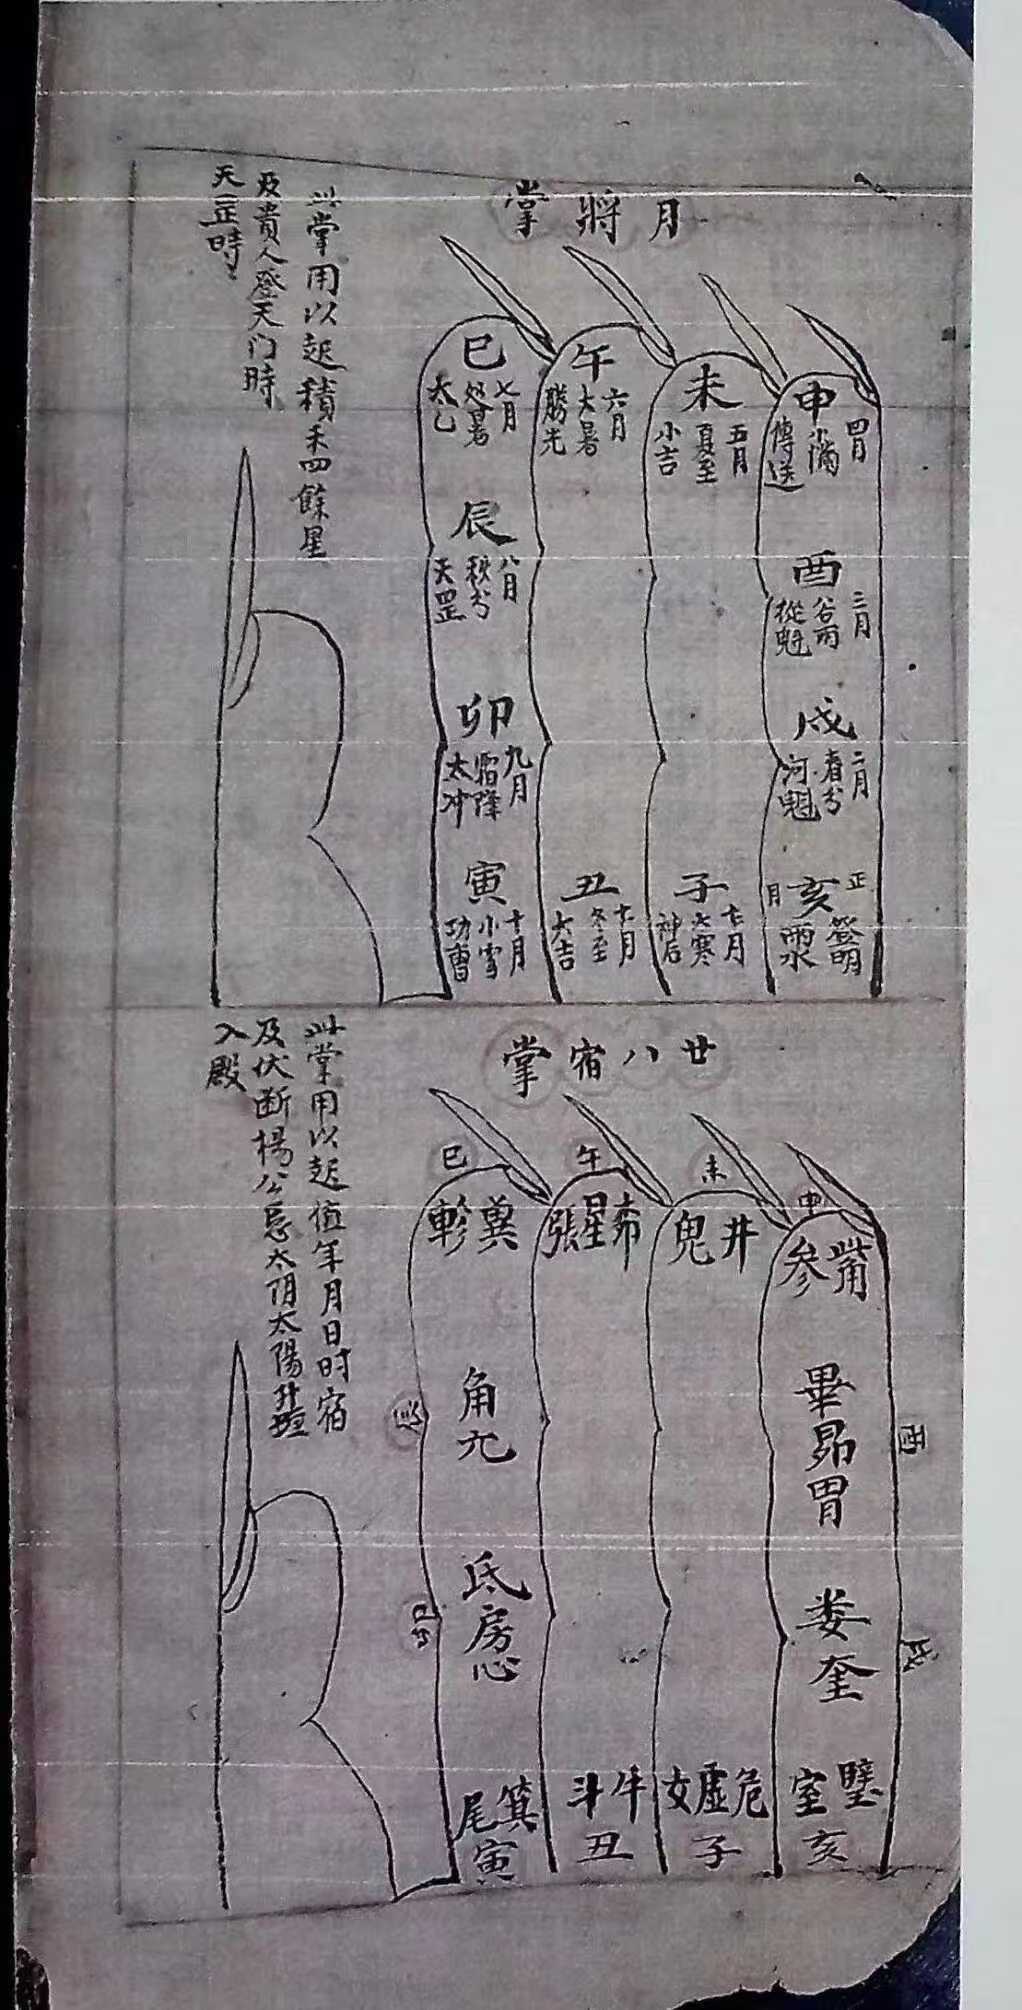 月將掌
申
四月
小滿
傳送
酉
三月
谷雨
從魁
戌
二月
春分
河魁
亥
正月
登明
雨水
未
五月
夏至
小吉
子
十二月
大寒
神后
午
六月
大暑
勝光
丑
十一月
冬至
大吉
巳
七月
处暑
太乙
辰
八月
秋分
天罡
卯
九月
霜降
太冲
寅
十月
小雪
功曹
此掌用以起積禾四餘星
及貴人登天门時
天罡時
廿八宿掌
申
觜參
酉
畢昴胃
戌
娄奎
壁室
亥
未
井鬼
危虚女
子
午
星張
牛斗
丑
巳
翼軫
辰
角亢
卯
氐房心
箕尾
寅
此掌用以起值年月日时宿
及伏断楊公忌太阴太陽升殿
入殿